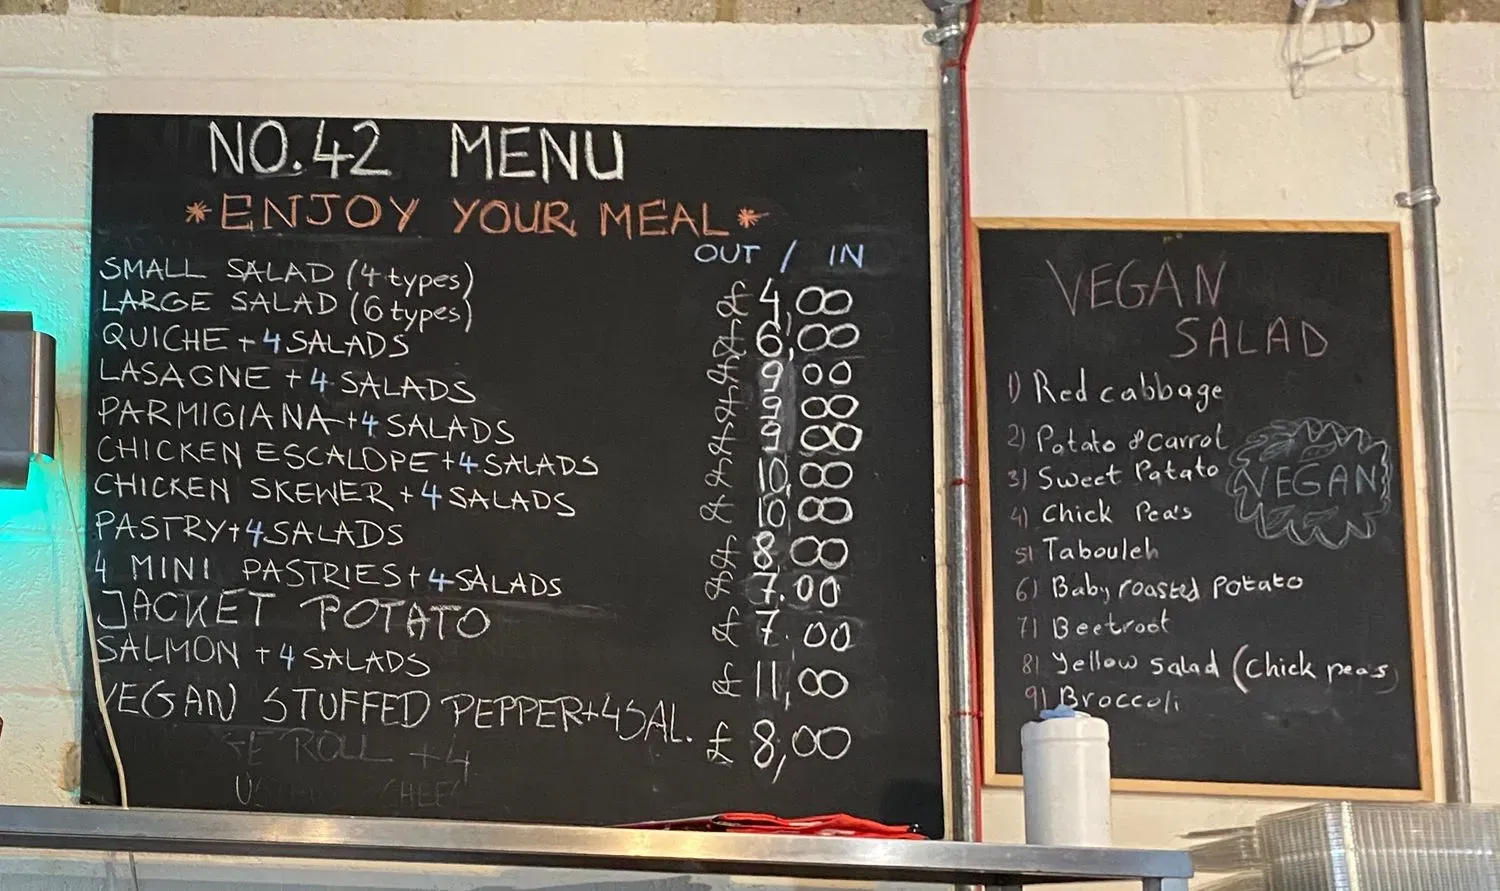 NO.42 MENU
*ENJOY YOUR MEAL*
OUT / IN
SMALL SALAD (4 types) £4,00
LARGE SALAD (6 types) £6,00
QUICHE + 4 SALADS £9 00
LASAGNE + 4 SALADS £9 00
PARMIGIANA + 4 SALADS £9 00
CHICKEN ESCALOPE + 4 SALADS £10,00
CHICKEN SKEWER + 4 SALADS £10,00
PASTRY + 4 SALADS £8,00
4 MINI PASTRIES + 4 SALADS £7.00
JACKET POTATO £7.00
SALMON + 4 SALADS £11,00
VEGAN STUFFED PEPPER + 4 SAL. £8,00
ROLL + 4
VEGAN
SALAD
1) Red cabbage
2) Potato & carrot
3) Sweet Potato
4) Chick Peas
5) Tabouleh
6) Baby roasted Potato
7) Beetroot
8) Yellow Salad (Chick peas)
9) Broccoli
VEGAN